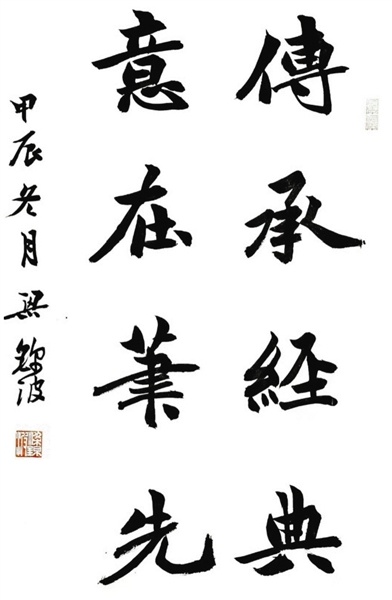 傳承經典
意在筆先
甲辰冬月梁錦波